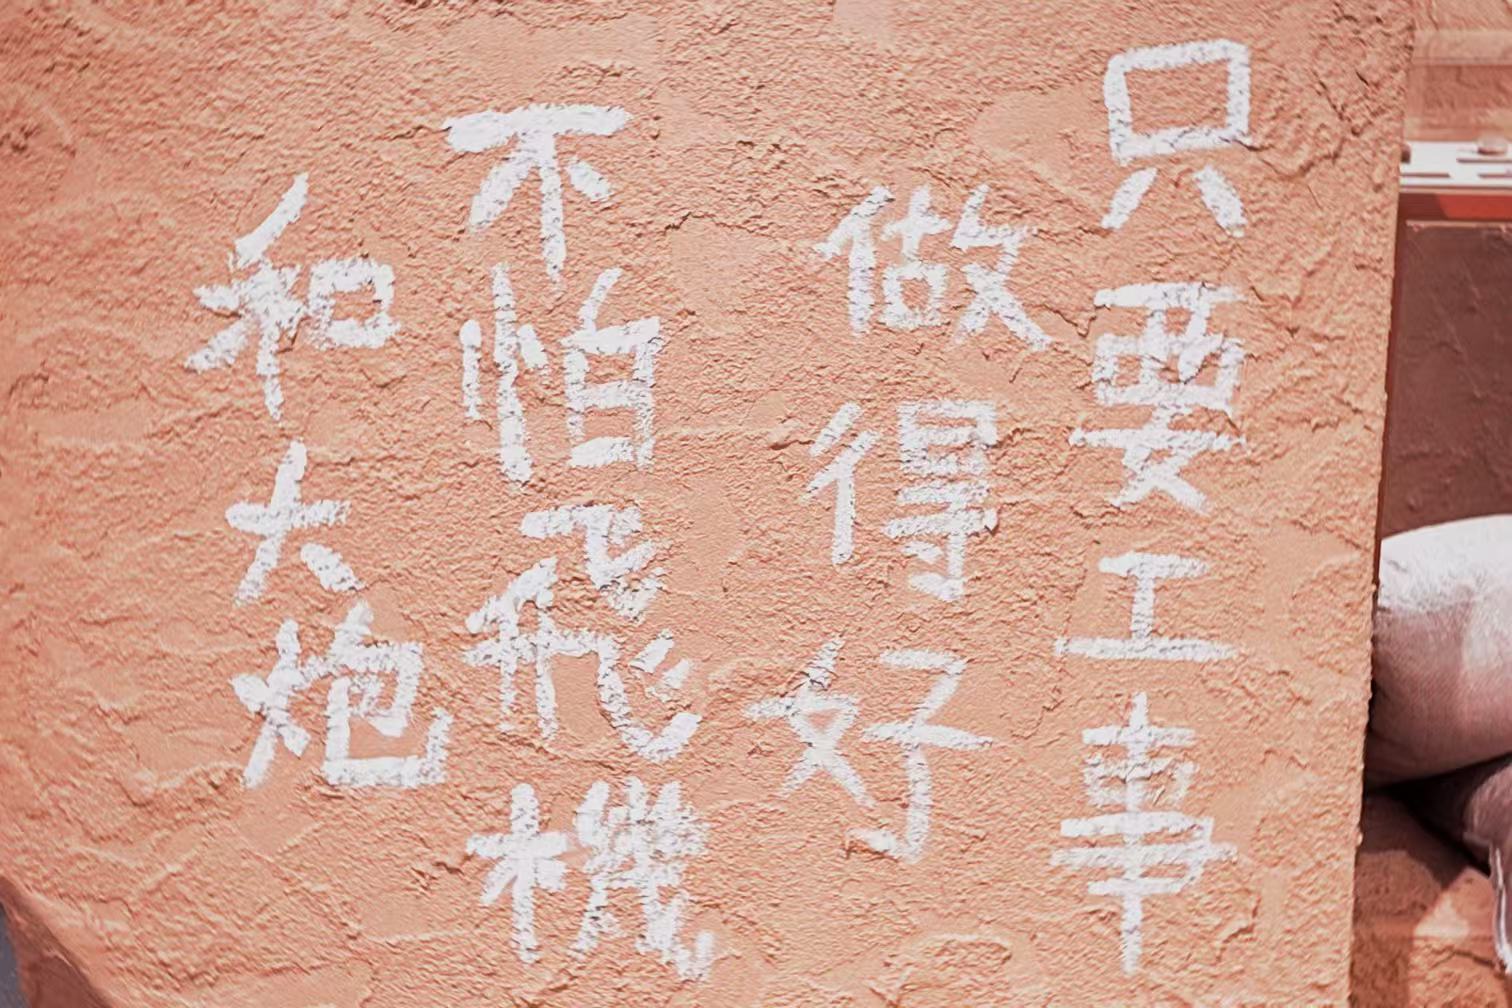 只要工事
做得好
不怕飛機
和大炮